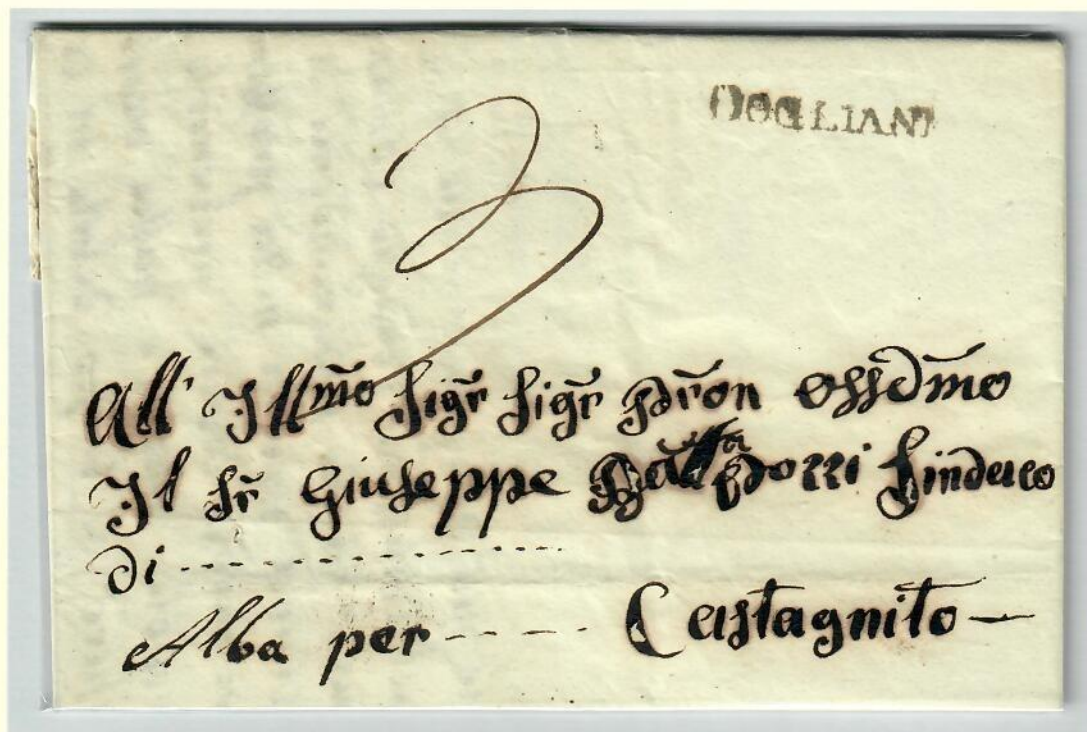 DOGLIANI
3
All' Illmo Sigr Sigr Pron Ossdmo
Il Sr Giuseppe Sindaco
di ----------
Alba per ----- Castagnito —